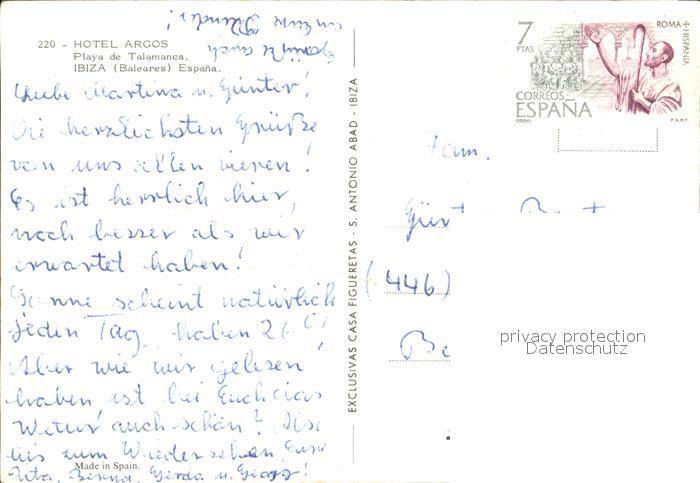 an Eure Kinder!
Grüße auch
220 - HOTEL ARGOS
Playa de Talamanca.
IBIZA (Baleares) España.
Liebe Martina u. Günter!
Die herzlichsten Grüße
von uns allen vieren!
Es ist herrlich hier,
noch besser als wir
erwartet haben!
Sonne scheint natürlich
jeden Tag, haben 26°!
Aber wie wir gelesen
haben ist bei Euch das
Wetter auch schön? Also
bis zum Wiedersehen, Eure
Gerda u. Georg!
Made in Spain.
EXCLUSIVAS CASA FIGUERETAS - S. ANTONIO ABAD - IBIZA
7
PTAS
ROMA + HISPANIA
CORREOS
ESPAÑA
F.N.M.T.
Fam.
(446)
Be
privacy protection
Datenschutz